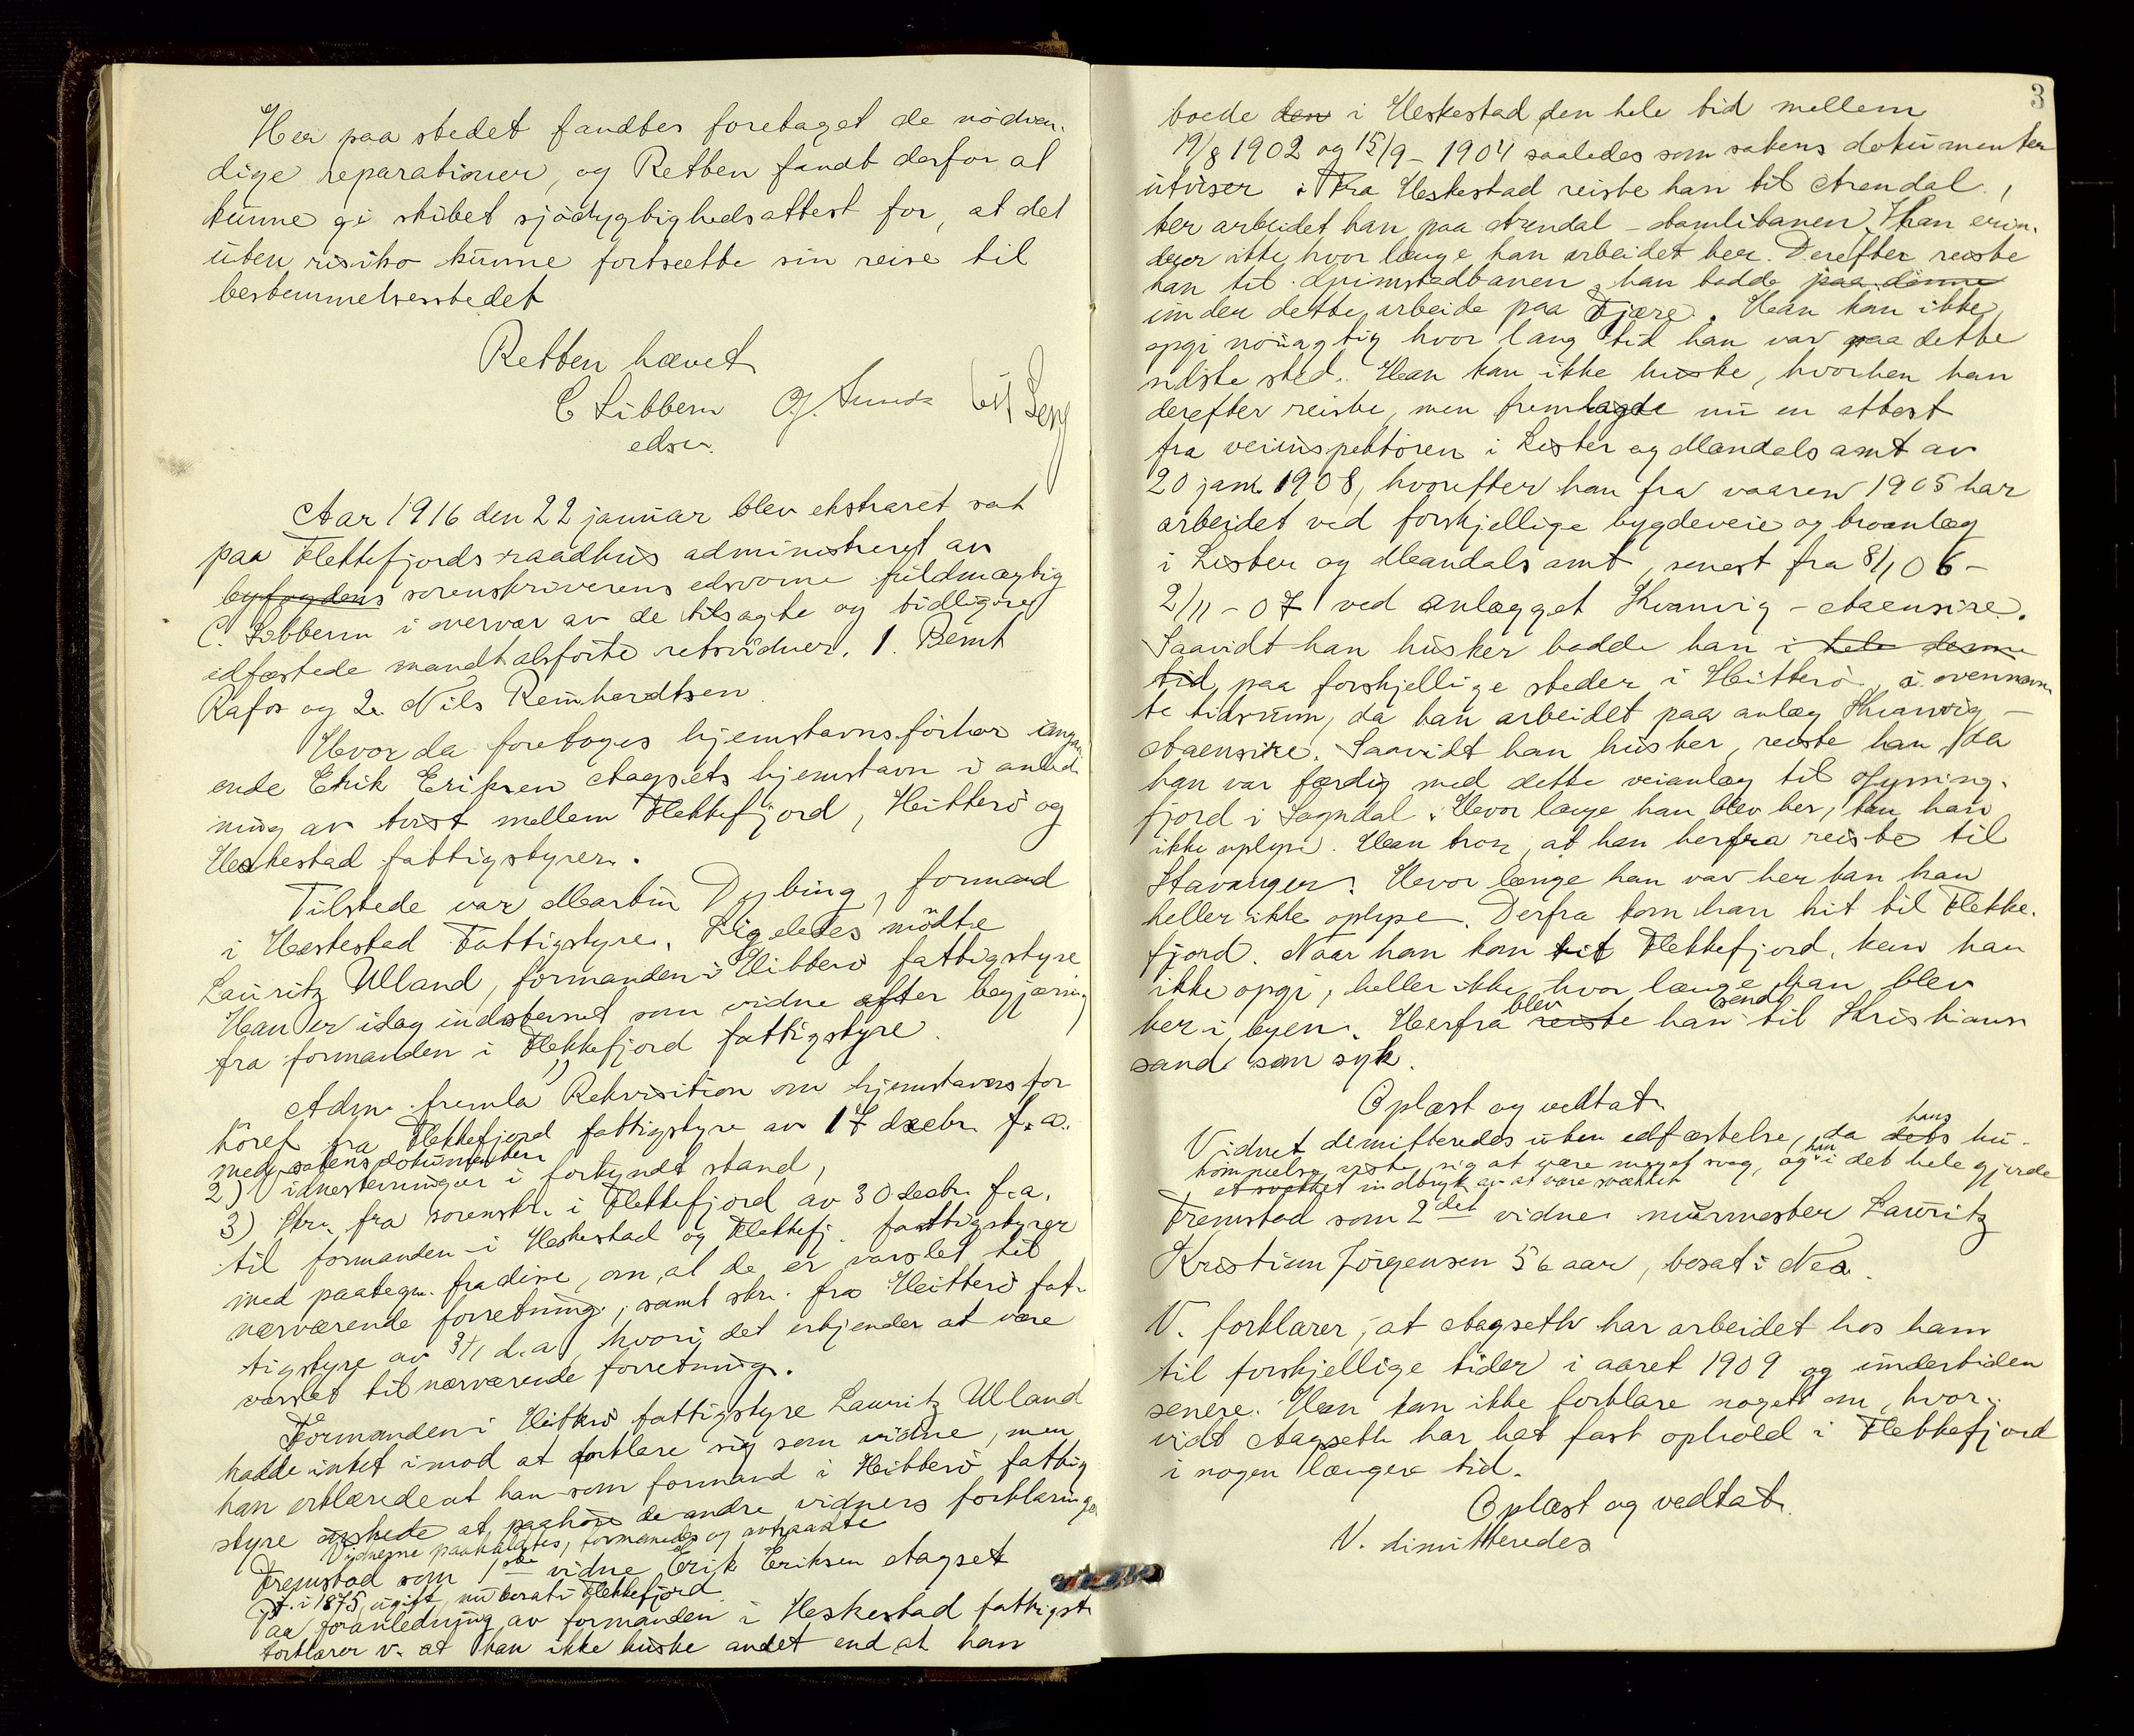 Her paa stedet fandtes foretaget de nødven-
dige reparationer, og Retten fandt derfor at
kunne gi skibet sjødygtighedsattest for, at det
uten risiko kunne fortsætte sin reise til
bestemmelsesstedet
Retten hævet
C Libbern
edsv.
Aar 1916 den 22 januar blev ekstraret sat
paa Flekkefjords raadhus administreret av
byfogdens sorenskriverens edsvorne fuldmægtig
C. Libbern i overvær av de tilsagte og tidligere
edfæstede mandtalsførte retsvidner, 1. Bernt
Rafos og 2. Nils Reinhardtsen
Hvor da foretoges hjemstavnsforhør angaa-
ende Erik Eriksen Aagsets hjemstavn i anled-
ning av tvist mellem Flekkefjord, Hitterø og
Heskestad fattigstyrer.
Tilstede var Martin Dybing, formand
i Heskestad Fattigstyre. Ligeledes mødte
Lauritz Ulland, formanden i Hitterø fattigstyre
Han er idag indstevnet som vidne efter begjæring
fra formanden i Flekkefjord fattigstyre.
Adm. fremla 1) Rekvisition om hjemstavnsfor
høret fra Flekkefjord fattigstyre av 17 decbr. f.a.
med sakens dokumenter
2) idnestevninger i forkyndt stand,
3) Skr. fra sorenskr. i Flekkefjord av 30 decbr. f.a.
til formanden i Heskestad og Flekkefj. fattigstyrer
med paategn. fra disse, om, at de er varslet til
nærværende forretning, samt skr. fra Hitterø fat-
tigstyre av 3/1 d.a., hvori det erkjender at være
varslet til nærværende forretning.
Formanden i Hitterø fattigstyre Lauritz Ulland
hadde intet imod at forklare sig som vidne, men
han erklærede at han som formand i Hitterø fattig
styre ønskede at paahøre de andre vidners forklaringer
Vidnerne paakaldtes, formanedes og avtraadte
Fremstod som 1ste vidne Erik Eriksen Aagset
f. i 1875, ugift, nu bosat i Flekkefjord.
Paa foranledning av formanden i Heskestad fattigst
forklarer v. at han ikke huske andet end at han
3
boede den i Heskestad den hele tid mellem
19/8 1902 og 15/9 - 1904 saaledes som sakens dokumenter
utviser. Fra Heskestad reiste han til Arendal,
her arbeidet han paa Arendal - Aamlibanen. Han erin-
drer ikke, hvor længe han arbeidet her. Derefter reiste
han til Grimstadbanen, han bodde paa denne
under dette arbeide paa Fjære. Han kan ikke
opgi nøiagtig hvor lang tid han var paa dette
sidste sted. Han kan ikke huske, hvorhen han
derefter reiste, men fremlagde nu en attest
fra veiinspektøren i Lister og Mandals amt av
20 jan. 1908, hvorefter han fra vaaren 1905 har
arbeidet ved forskjellige bygdeveie og broanlæg
i Lister og Mandals amt, senest fra 8/1 06 -
2/11 - 07 ved anlægget Kvanvig - Aaensire.
Saavidt han husker bodde han i hele denne
tid, paa forskjellige steder i Hitterø, i ovennævn
te tidsrum, da han arbeidet paa anlæg Kvanvig -
Aaensire. Saavidt han husker, reiste han, da
han var færdig med dette veianlæg til Gyming-
fjord i Sogndal. Hvor længe han blev her, kan han
ikke oplyse. Han tror, at han herfra reiste til
Stavanger. Hvor længe han var her kan han
heller ikke oplyse. Derfra kom han hit til Flekke-
fjord. Naar han kom hit Flekkefjord, kan han
ikke opgi, heller ikke hvor længe han blev
her i byen. Herfra reiste blev han sendt til Kristian-
sand som syk.
Oplæst og vedtat.
Vidnet dimitteredes uten edfæstelse, da dets hans hu-
kommelse viste sig at være meget svag, og han i det hele gjorde
et svækket indtryk av at være svækket
Fremstod som 2det vidne murmester Lauritz
Kristian Jørgensen 56 aar, bosat i Nes.
V. forklarer, at Aagseth har arbeidet hos ham
til forskjellige tider i aaret 1909 og undertiden
senere. Han kan ikke forklare noget om, hvor-
vidt Aagseth har hat fast ophold i Flekkefjord
i nogen længere tid.
Oplæst og vedtat.
V. dimitteredes